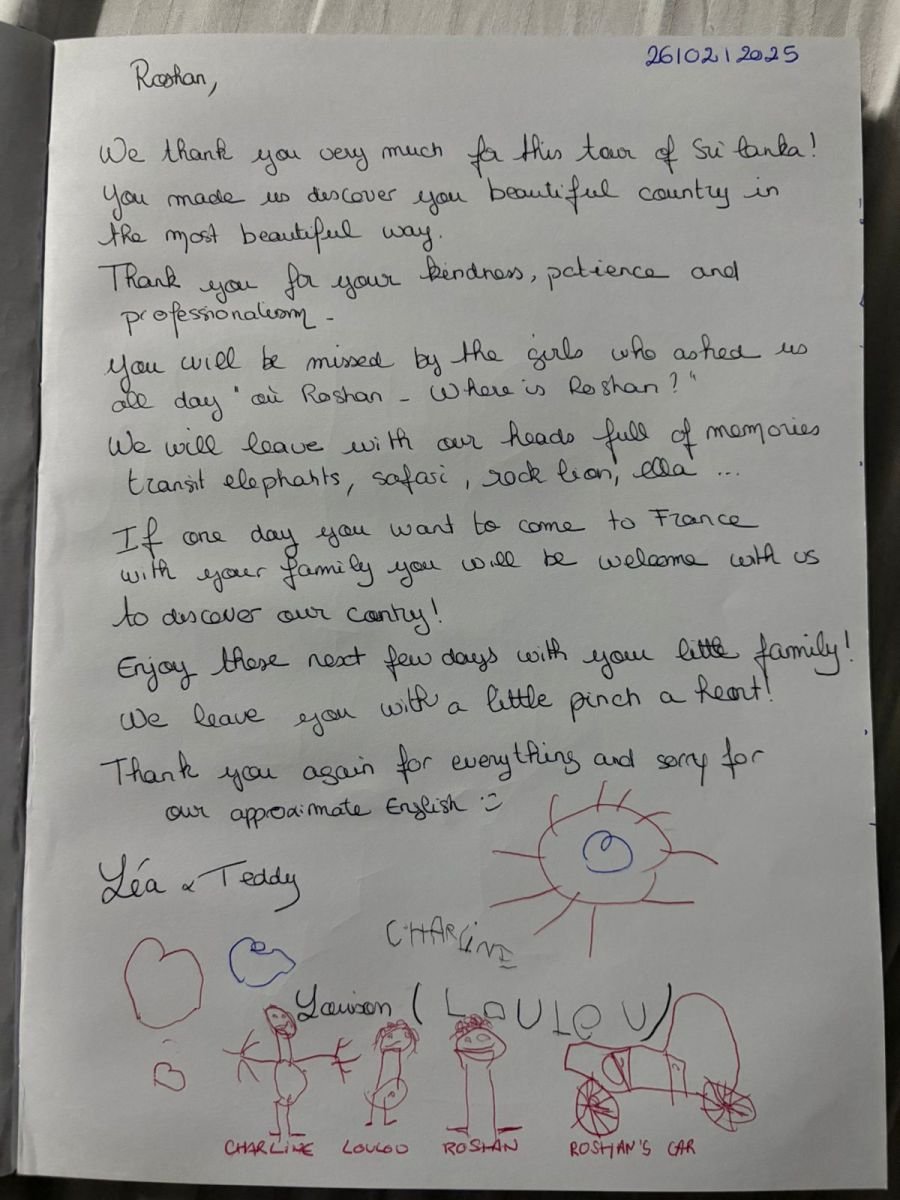 26/02/2025
Roshan,
We thank you very much for this tour of Sri Lanka!
You made us discover you beautiful country in
the most beautiful way.
Thank you for your kindness, patience and
professionalism -
You will be missed by the girls who asked us
all day "où Roshan - Where is Roshan?"
We will leave with our heads full of memories
transit elephants, safari, rock lion, ella ...
If one day you want to come to France
with your family you will be welcome with us
to discover our contry!
Enjoy these next few days with your little family!
We leave you with a little pinch a heart!
Thank you again for everything and sorry for
our approximate English :)
Léa & Teddy
CHARLINE
Louison (LOULOU)
CHARLINE LOULOU ROSHAN ROSHAN'S CAR